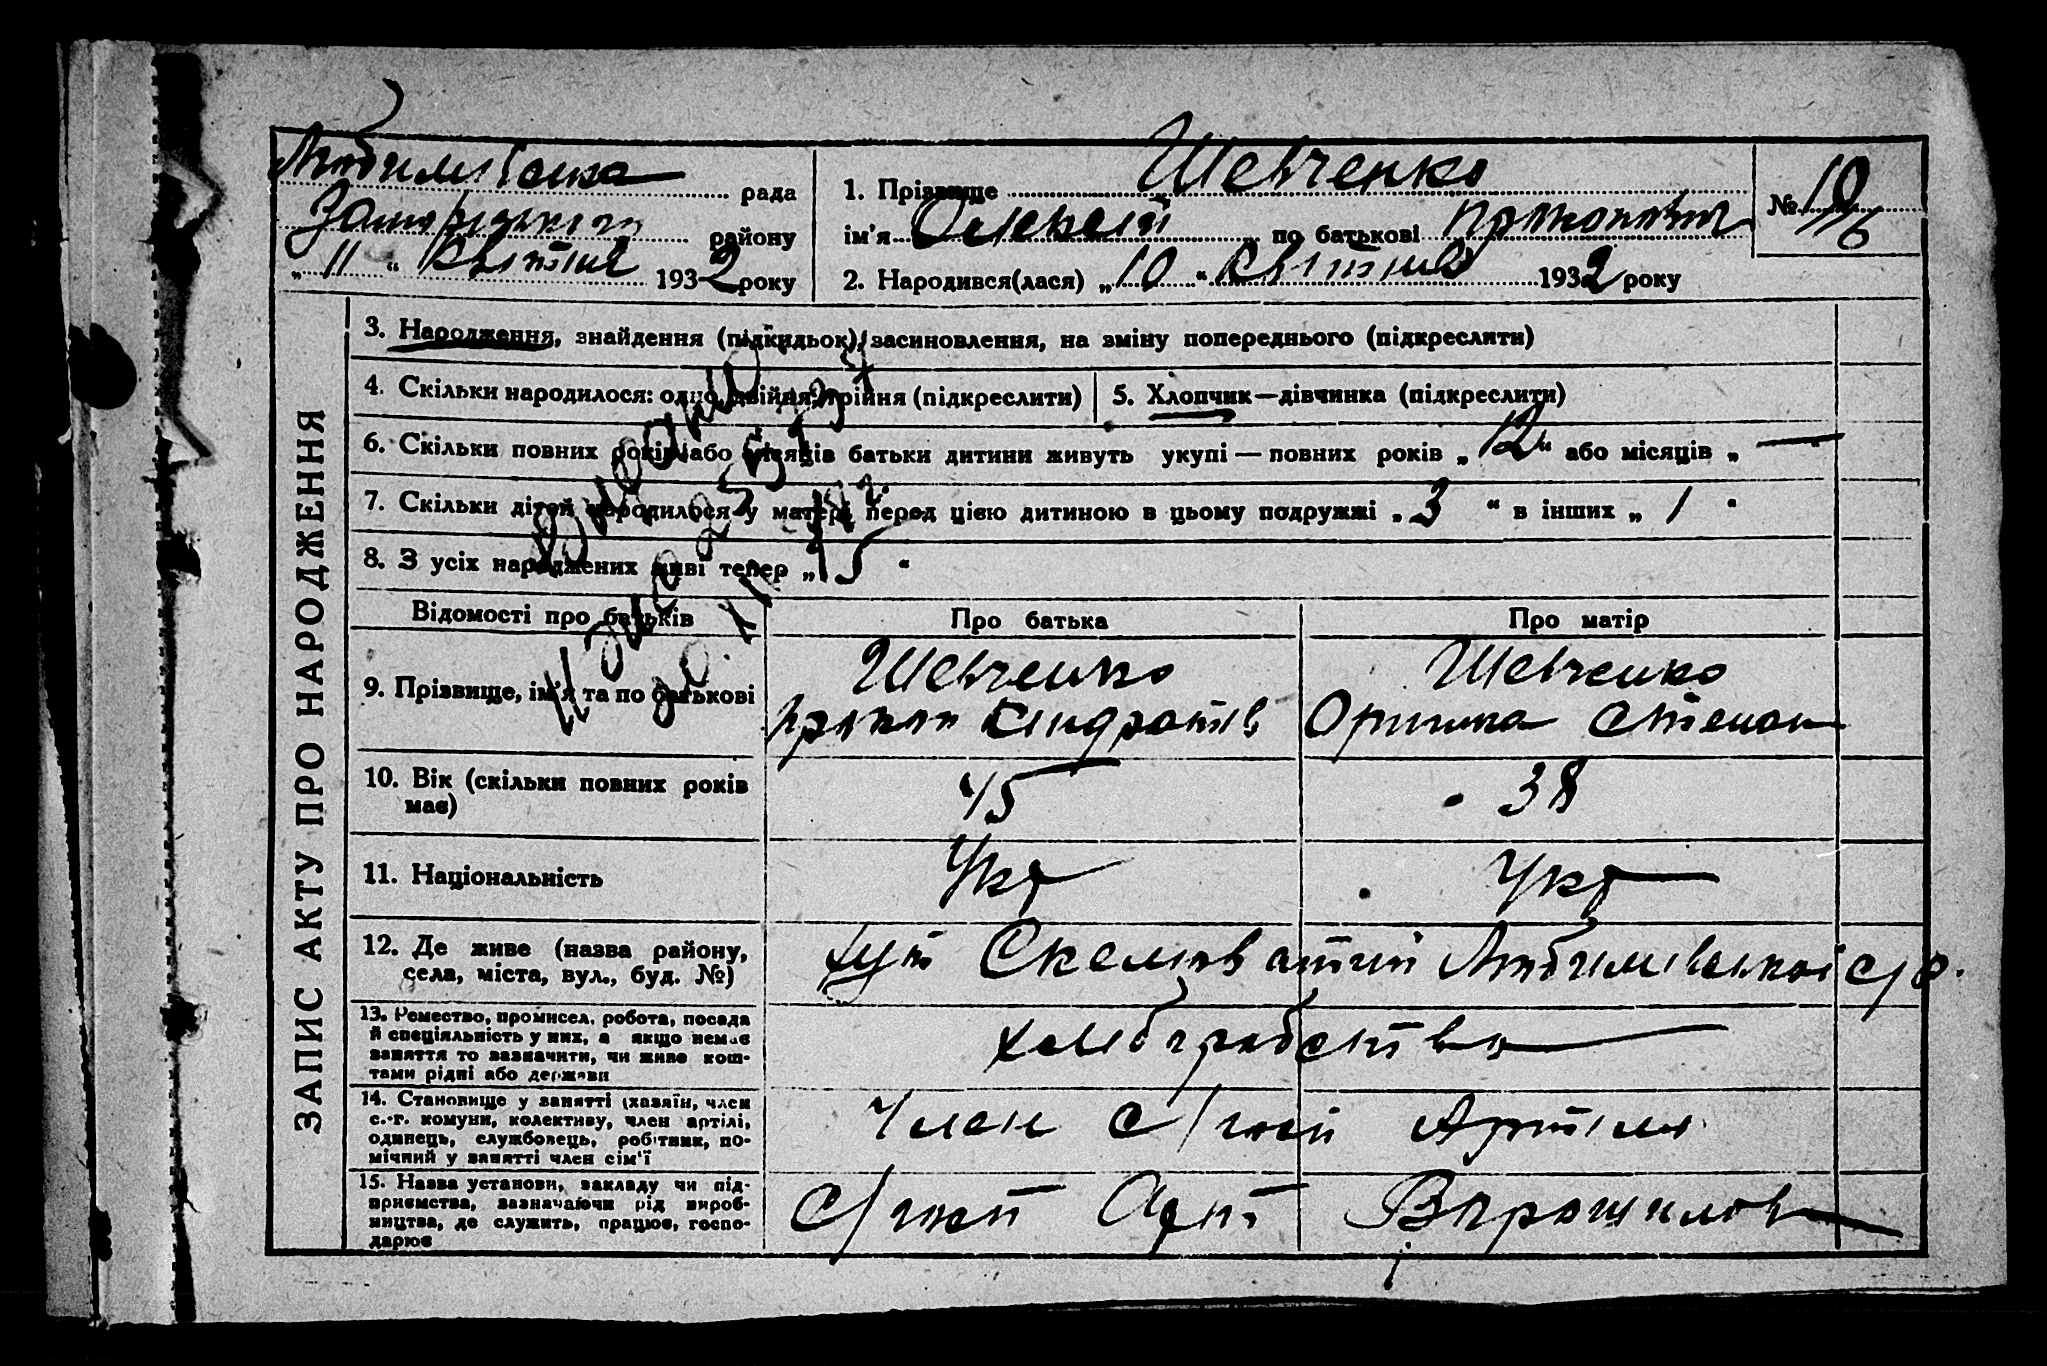 Любимівська рада
Запорізького району
„ 11 “ Квітня 1932 року
1. Прізвище Шевченко
ім’я Олексій по батькові Прокопович
2. Народився(лася) „ 10 “ Квітня 1932 року
№ 10/16
ЗАПИС АКТУ ПРО НАРОДЖЕННЯ
3. Народження, знайдення (підкидьок), засиновлення, на зміну попереднього (підкреслити)
4. Скільки народилося: одно, двійня, трійня (підкреслити)
5. Хлопчик—дівчинка (підкреслити)
6. Скільки повних років або місяців батьки дитини живуть укупі — повних років „ 12 “ або місяців „ — “
7. Скільки дітей народилося у матері перед цією дитиною в цьому подружжі „ 3 “ в інших „ 1 “
8. З усіх народжених живі тепер „ 5 “
Відомості про батьків
Про батька
Про матір
9. Прізвище, ім’я та по батькові
Шевченко
Прокоп Кіндратів
Шевченко
Оришка Степан
10. Вік (скільки повних років
має)
45
38
11. Національність
Укр
Укр
12. Де живе (назва району,
села, міста, вул., буд. №)
хут Скелюватий Любимівської с/р.
13. Ремество, промисел, робота, посада
й спеціяльність у них, а якщо немає
заняття то зазначити, чи живе кош-
тами рідні або держави
хліборобство
14. Становище у занятті (хазяїн, член
с.-г. комуни, колективу, член артілі,
одинець, службовець, робітник, по-
мічний у занятті член сім’ї
Член с/госп Артіли
15. Назва установи, закладу чи під-
приємства, зазначаючи рід вироб-
ництва, де служить, працює, госпо-
дарює
с/госп Арт Ворошилов